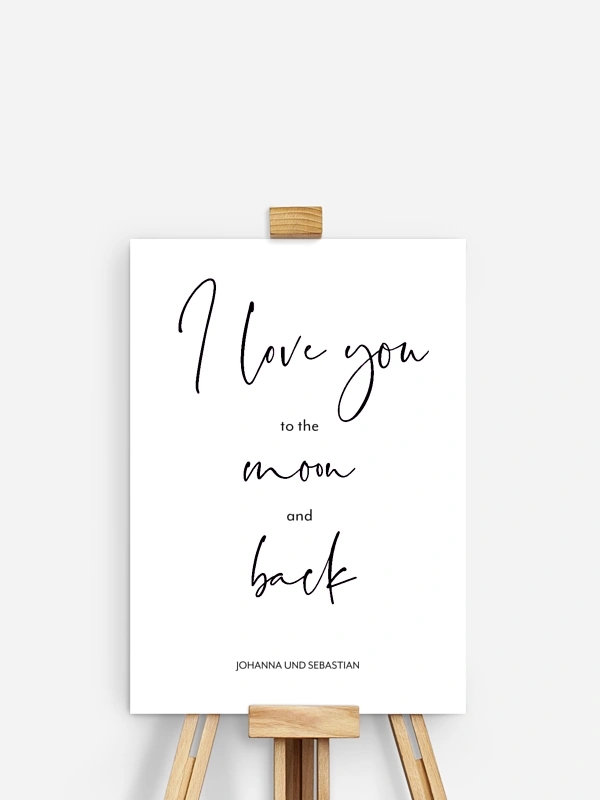 I love you
to the
moon
and
back
JOHANNA UND SEBASTIAN